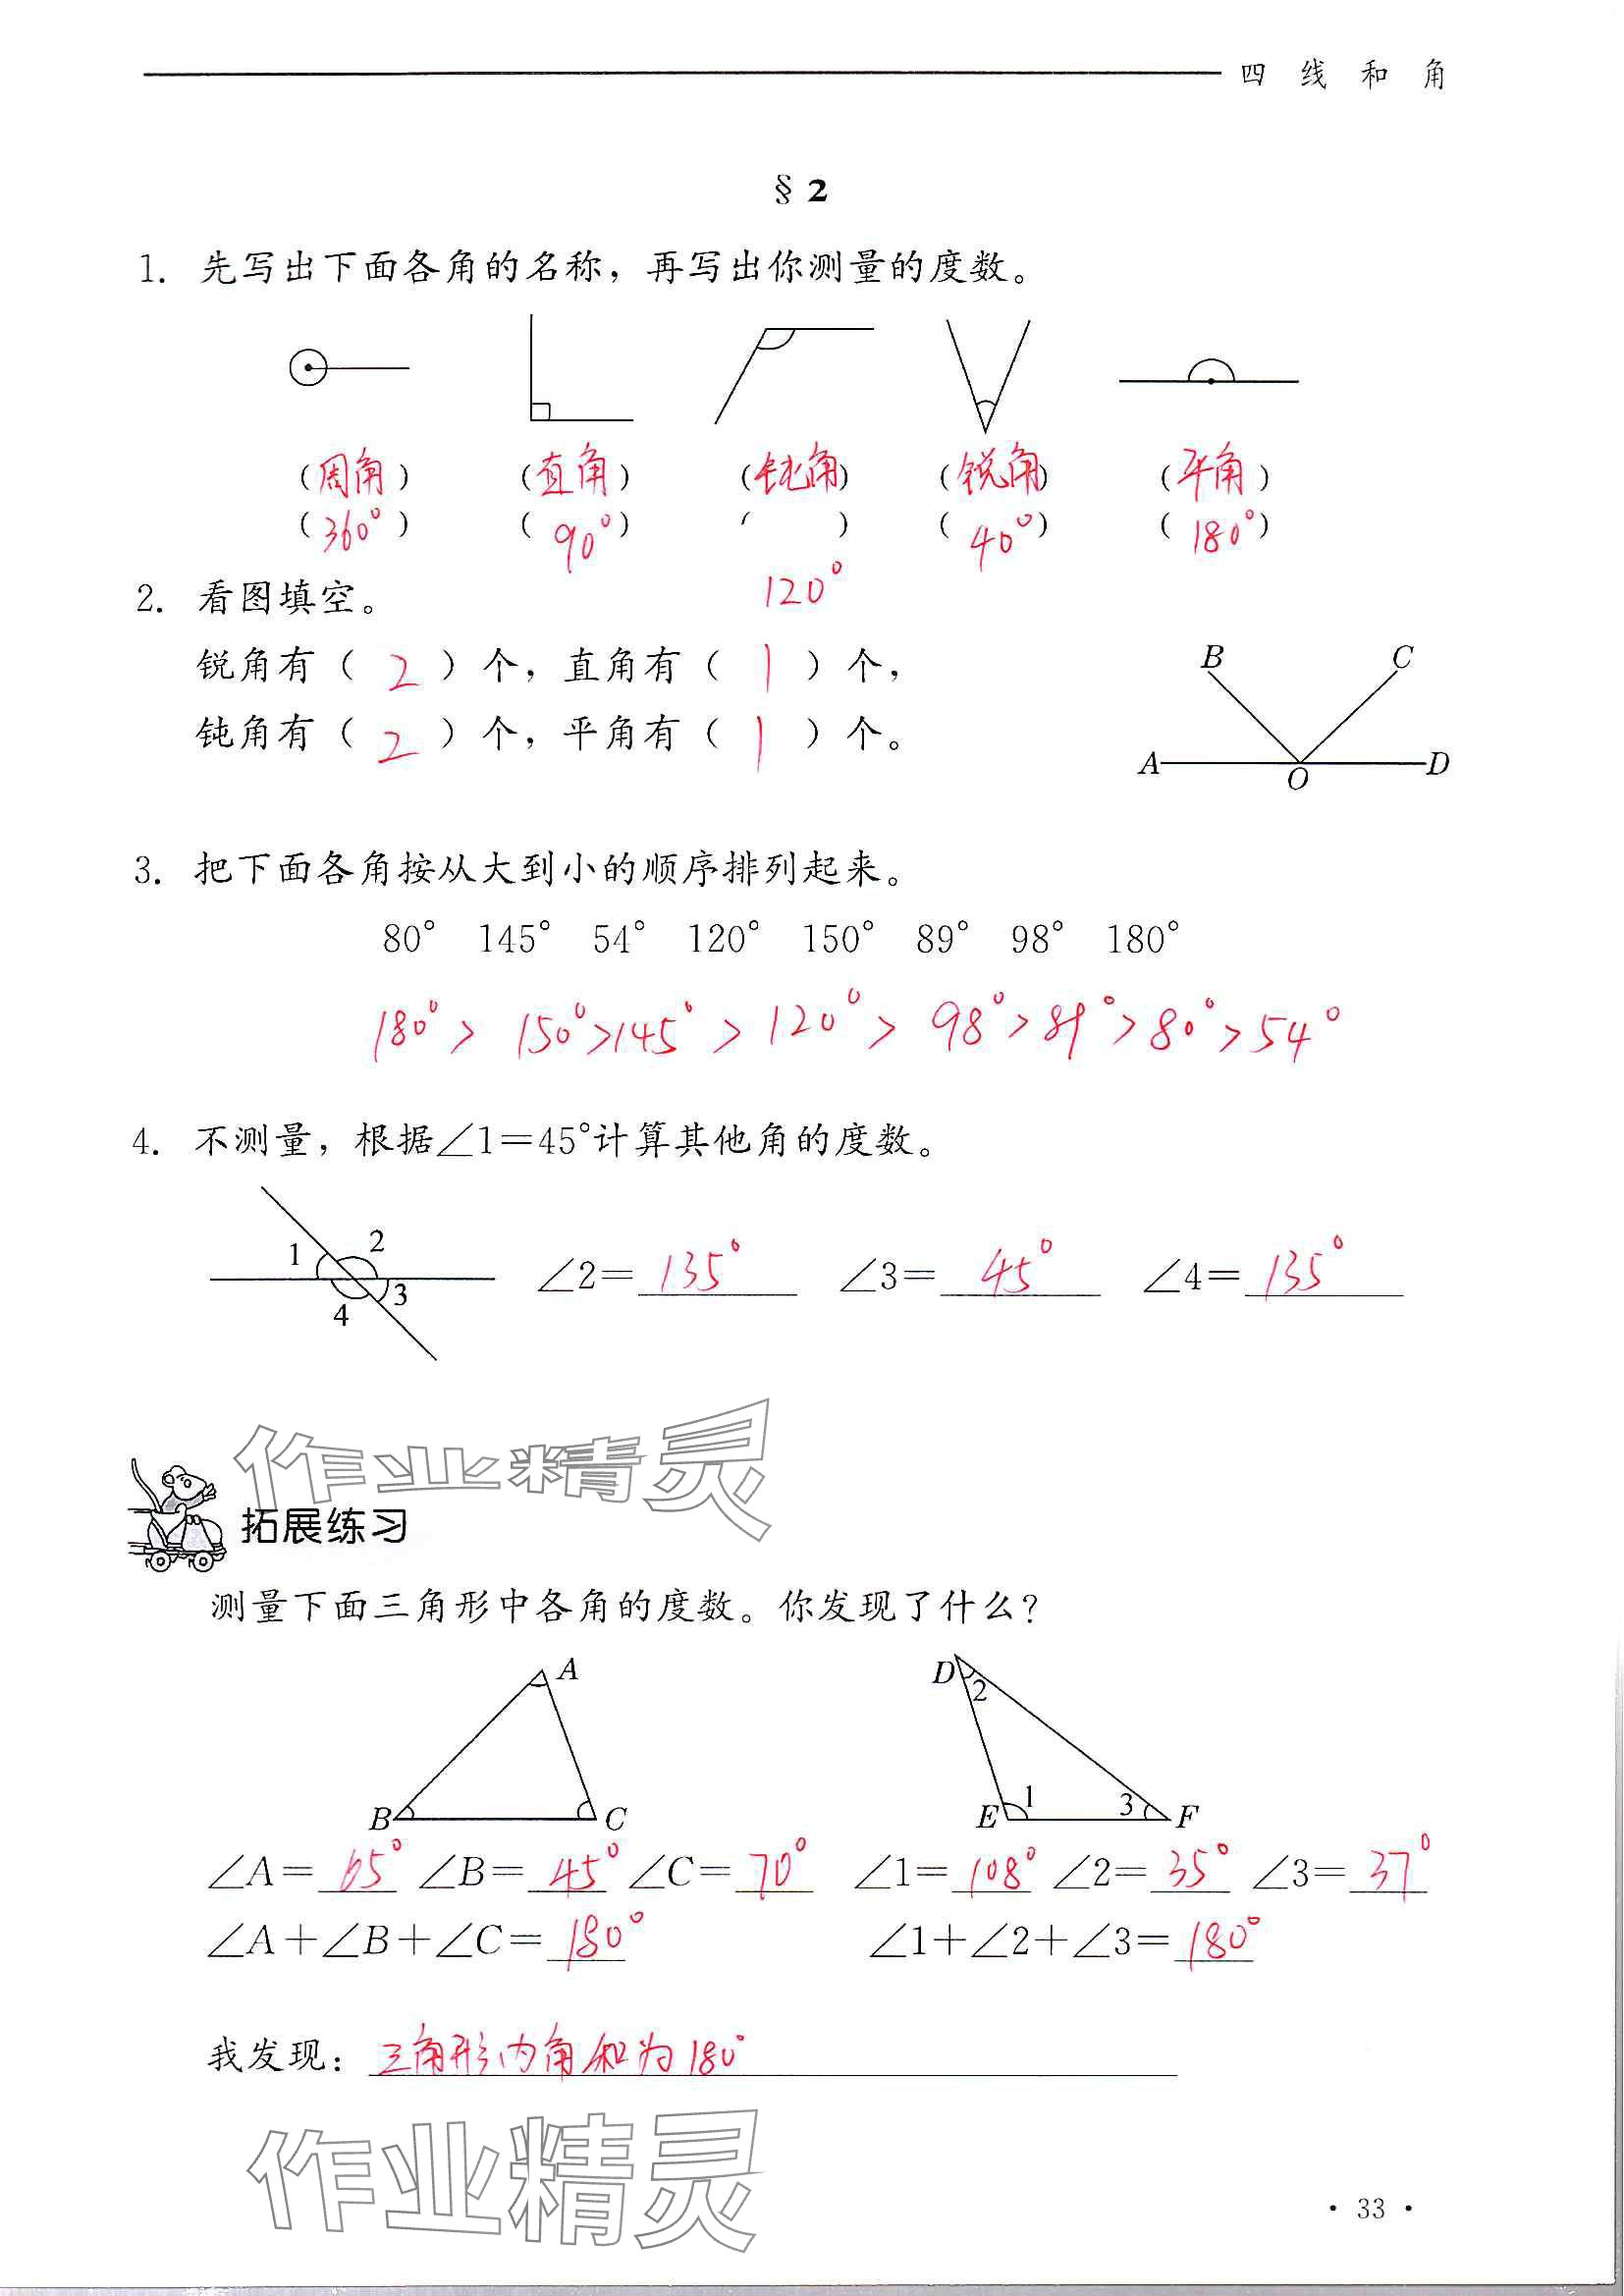 四 线 和 角
§ 2
1. 先写出下面各角的名称，再写出你测量的度数。
(周角) (直角) (钝角) (锐角) (平角)
(360°) (90°) ( ) (40°) (180°)
120°
2. 看图填空。
锐角有（ 2 ）个，直角有（ 1 ）个，
钝角有（ 2 ）个，平角有（ 1 ）个。
B C
A O D
3. 把下面各角按从大到小的顺序排列起来。
80° 145° 54° 120° 150° 89° 98° 180°
180° > 150° > 145° > 120° > 98° > 89° > 80° > 54°
4. 不测量，根据∠1＝45°计算其他角的度数。
1 2 3 4
∠2＝135° ∠3＝45° ∠4＝135°
作业精灵
拓展练习
测量下面三角形中各角的度数。你发现了什么？
A D 2
B C E 1 3 F
∠A＝65° ∠B＝45° ∠C＝70° ∠1＝108° ∠2＝35° ∠3＝37°
∠A＋∠B＋∠C＝180° ∠1＋∠2＋∠3＝180°
我发现：三角形内角和为180°
作业精灵
· 33 ·